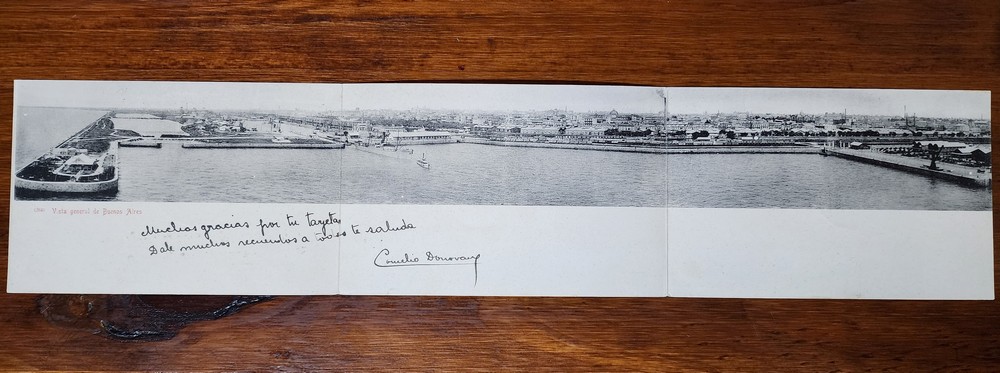 Vista general de Buenos Aires
Muchas gracias por tu tarjeta
Dale muchos recuerdos a todos te saluda
Cornelio Donovan